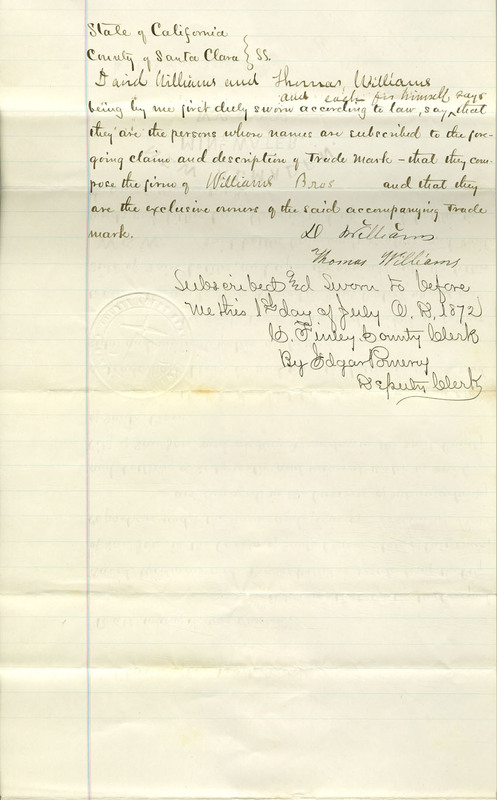 State of California
County of Santa Clara } SS.
David Williams and Thomas Williams
and each for himself says
being by me first duly sworn according to law, say ^ that
they are the persons whose names are subscribed to the fore-
going claim and description of Trade Mark – that they com-
pose the firm of Williams Bros and that they
are the exclusive owners of the said accompanying Trade
mark. D Williams
Thomas Williams
Subscribed and Sworn to before
me this 1st day of July A. D. 1872
Finley County Clerk
By Edgar Pomeroy
Deputy Clerk